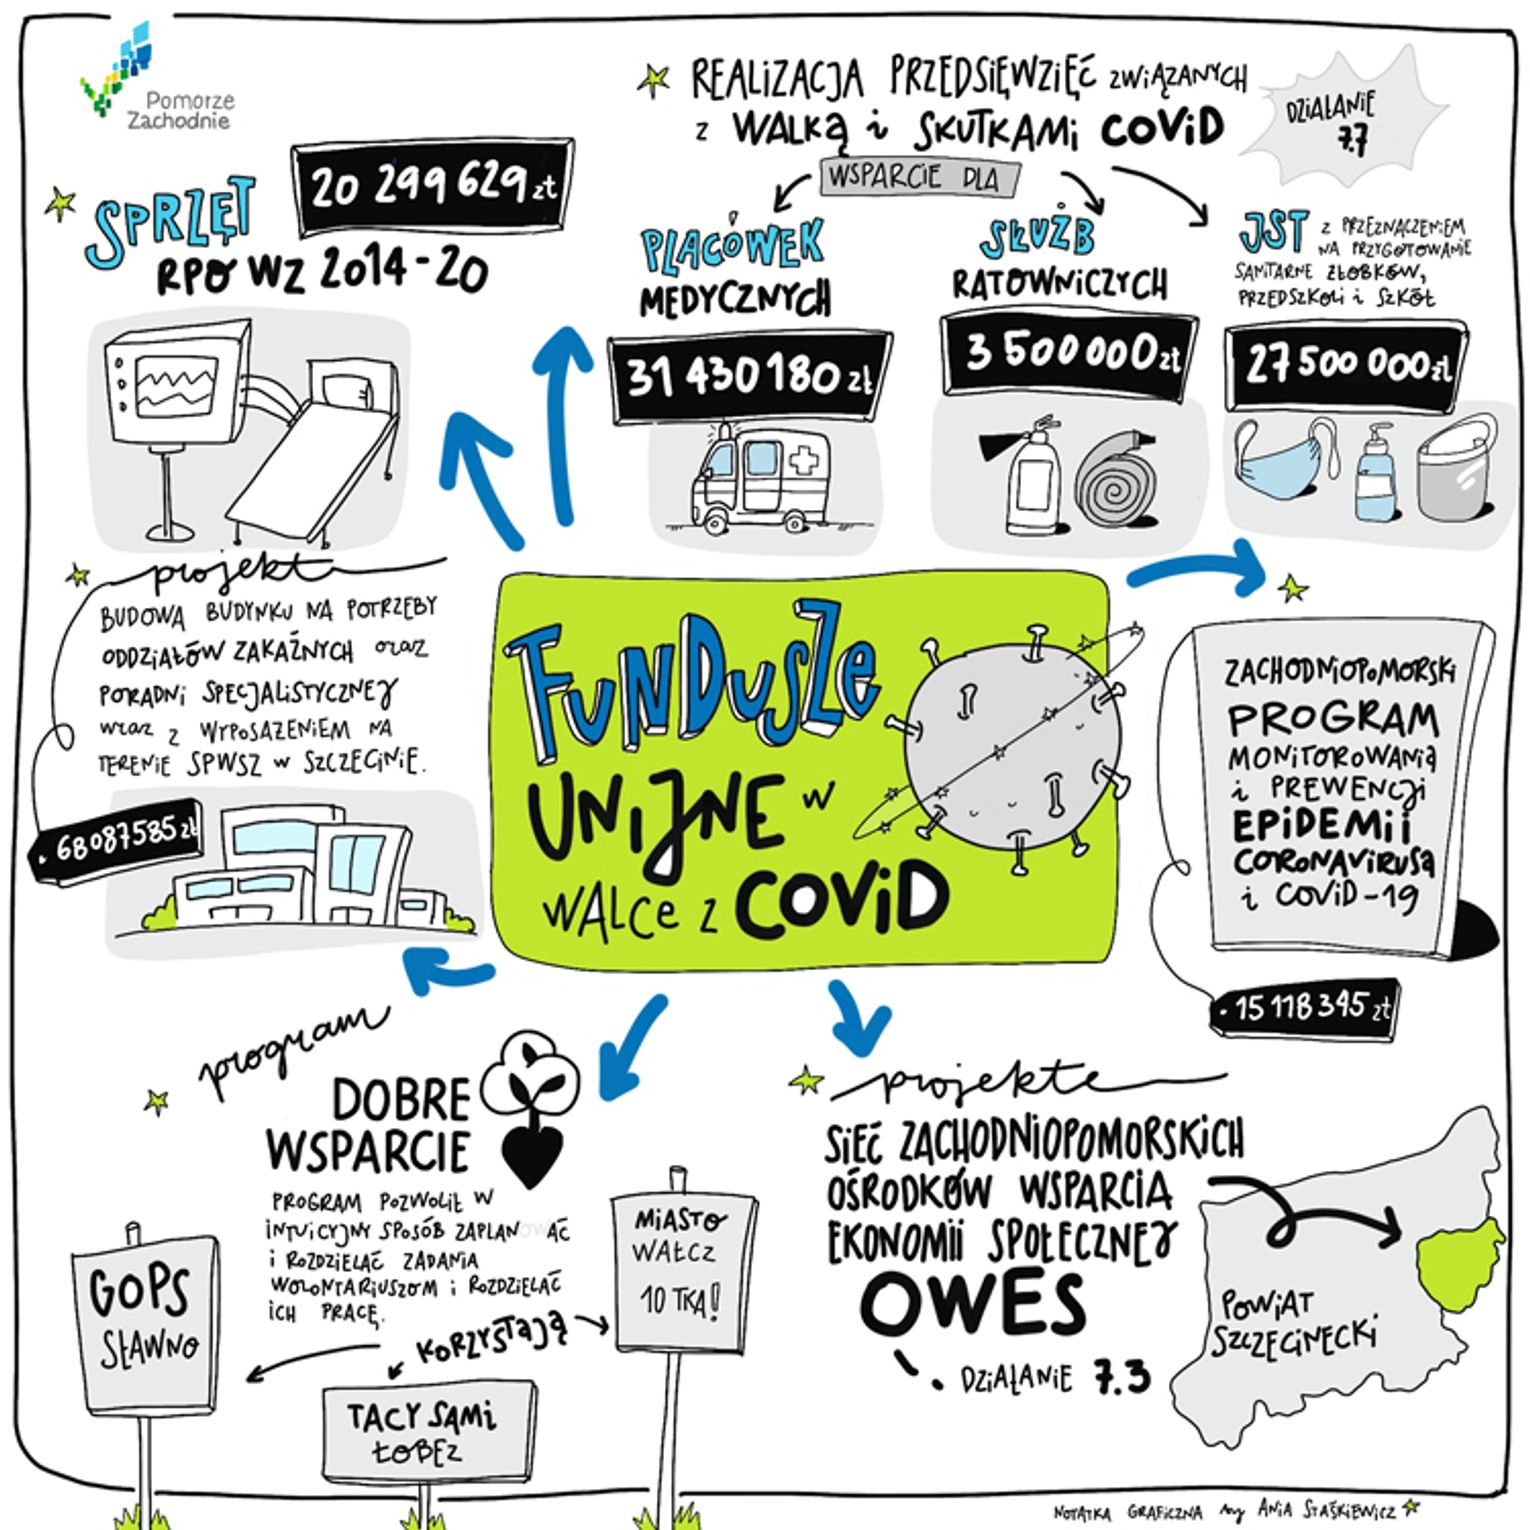 Pomorze
Zachodnie
SPRZĘT
20 299 629 zł
RPO WZ 2014-20
REALIZACJA PRZEDSIĘWZIĘĆ ZWIĄZANYCH
z WALKĄ i SKUTKAMI COVID
DZIAŁANIE
7.7
WSPARCIE DLA
PLACÓWEK
MEDYCZNYCH
31 430 180 zł
SŁUŻB
RATOWNICZYCH
3 500 000 zł
JST z PRZEZNACZENIEM
NA PRZYGOTOWANIE
SANITARNE ŻŁOBKÓW,
PRZEDSZKOLI i SZKÓŁ
27 500 000 zł
projekt
BUDOWA BUDYNKU NA POTRZEBY
ODDZIAŁÓW ZAKAŹNYCH oraz
PORADNI SPECJALISTYCZNEJ
wraz z WYPOSAŻENIEM NA
TERENIE SPWSZ w SZCZECINIE.
68 087 585 zł
FUNDUSZE
UNIJNE w
WALCE z COVID
ZACHODNIOPOMORSKI
PROGRAM
MONITOROWANIA
i PREWENCJI
EPIDEMII
CORONAVIRUSA
i COVID-19
15 118 345 zł
program
DOBRE
WSPARCIE
PROGRAM POZWOLIŁ W
INTUICYJNY SPOSÓB ZAPLANOWAĆ
i ROZDZIELAĆ ZADANIA
WOLONTARIUSZOM i ROZDZIELAĆ
ICH PRACĘ.
KORZYSTAJĄ
GOPS
SŁAWNO
TACY SAMI
ŁOBEZ
MIASTO
WAŁCZ
10TKA!
projekte
SIEĆ ZACHODNIOPOMORSKICH
OŚRODKÓW WSPARCIA
EKONOMII SPOŁECZNEJ
OWES
DZIAŁANIE 7.3
POWIAT
SZCZECINECKI
NOTATKA GRAFICZNA by ANIA STAŚKIEWICZ